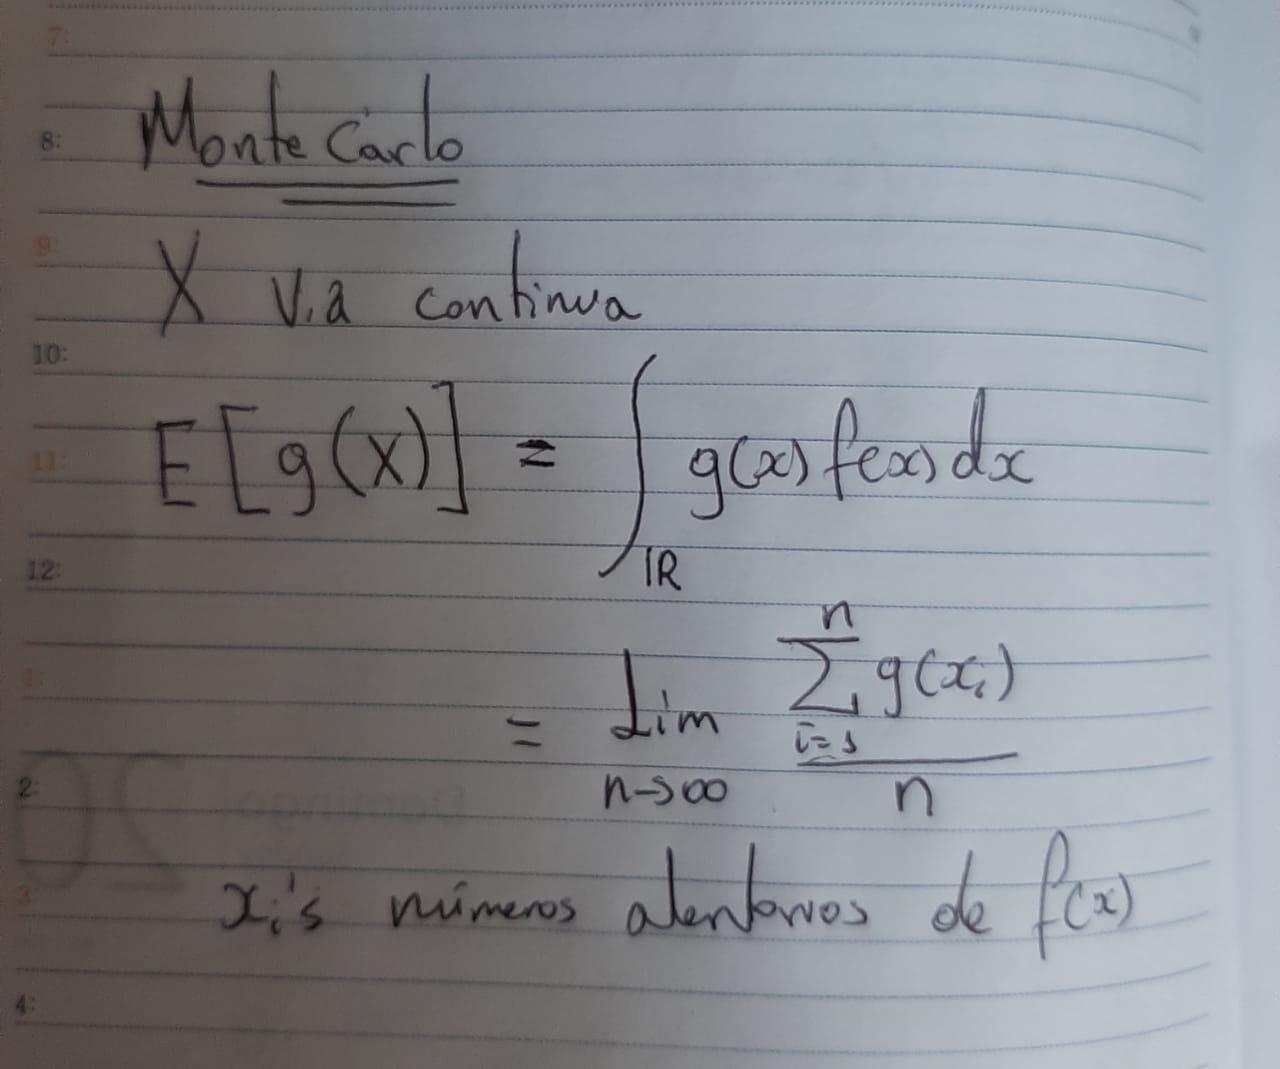 7:
8:
Monte Carlo
9:
X v.a continua
10:
11:
E[g(X)] = ∫_ℝ g(x) f(x) dx
12:
1:
= Lim_{n→∞} \frac{\sum_{i=1}^{n} g(x_i)}{n}
2:
3:
x_i's números aleatorios de f(x)
4: